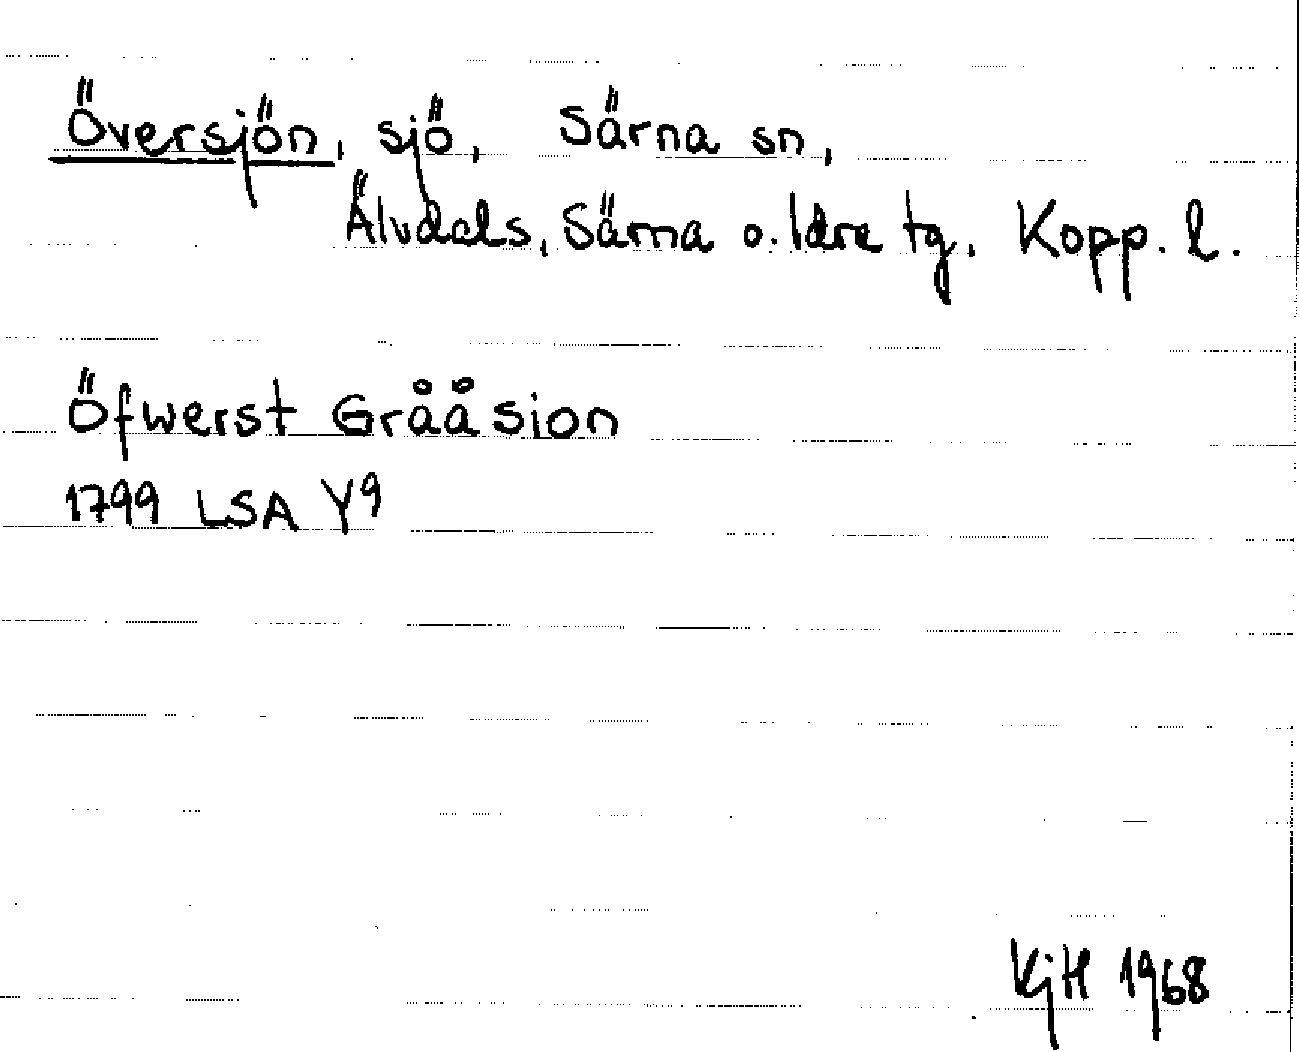 Översjön, sjö, Särna sn,
Älvdals, Särna o. Idre tg, Kopp. l.
Öfwerst Gråå sion
1799 LSA Y9
KjH 1968